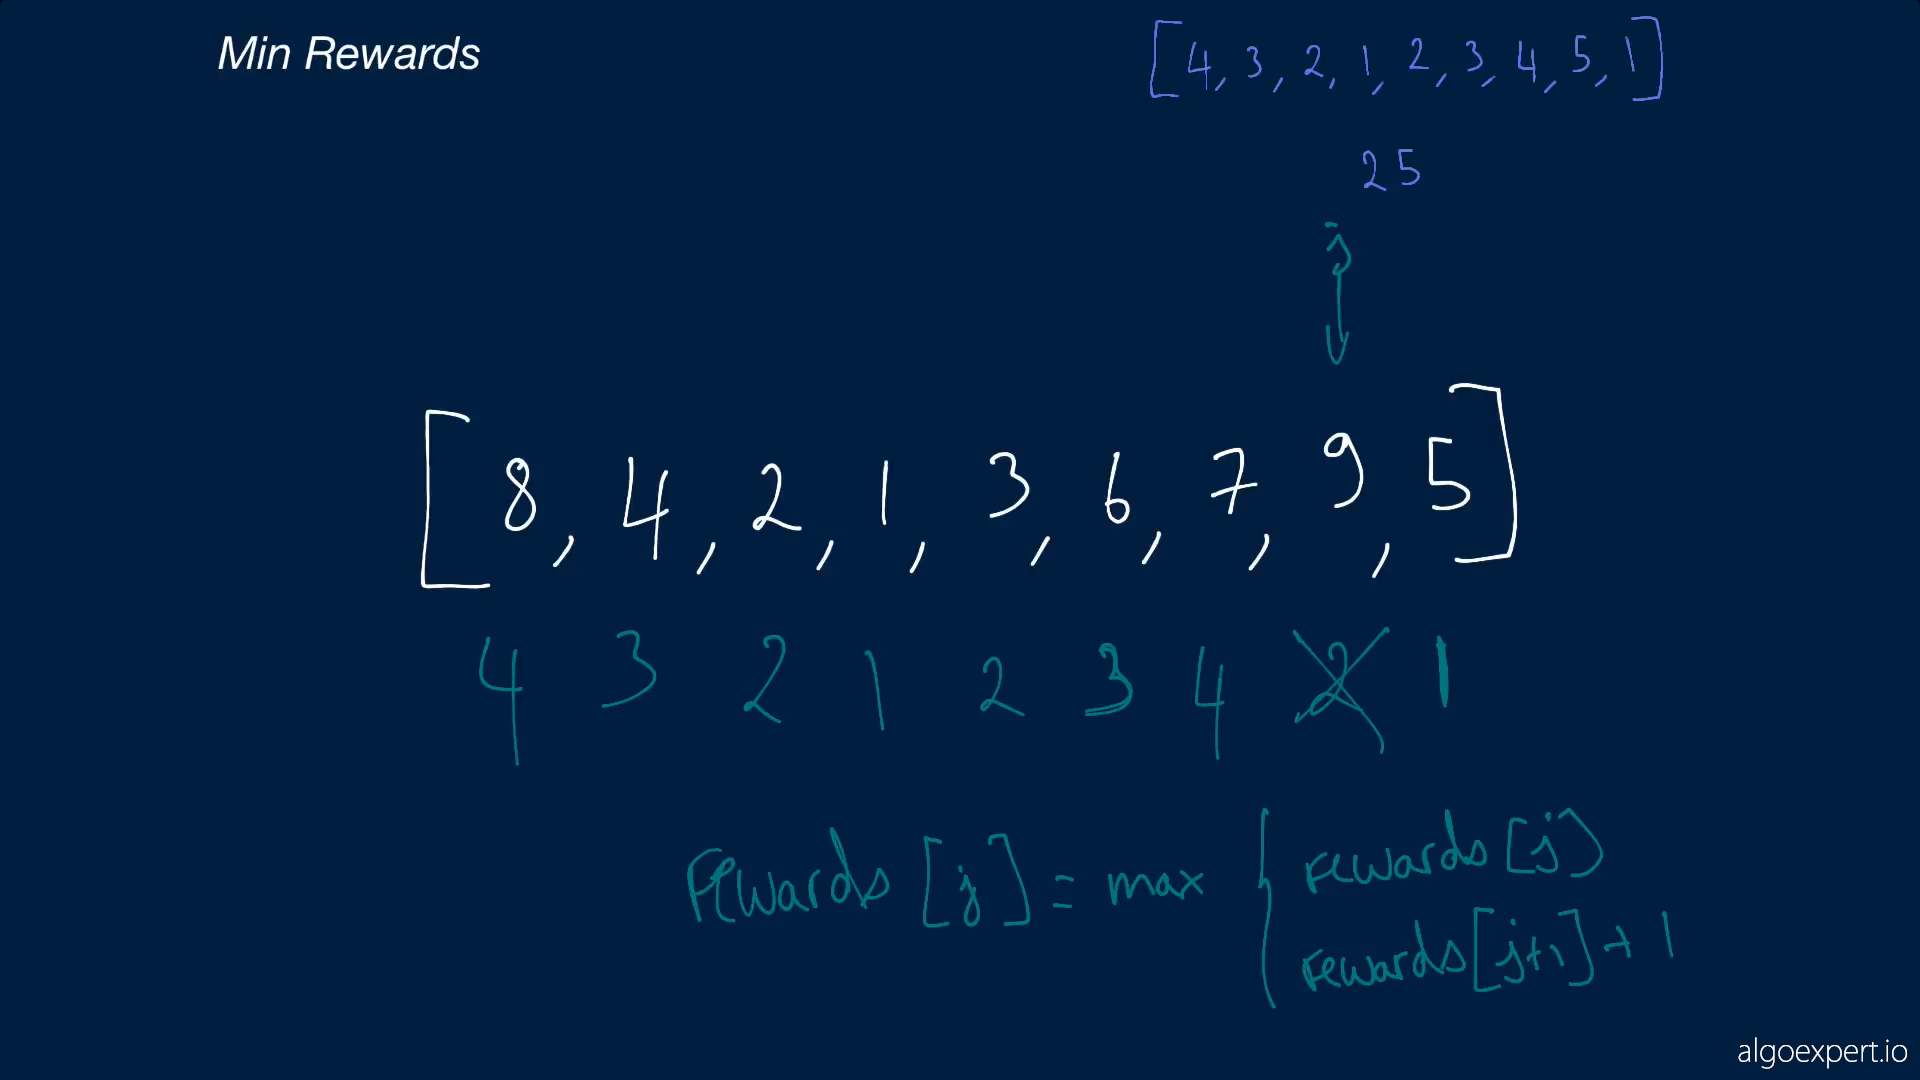 Min Rewards
[4, 3, 2, 1, 2, 3, 4, 5, 1]
25
j
[8, 4, 2, 1, 3, 6, 7, 9, 5]
4 3 2 1 2 3 4 2 1
rewards[j] = max { rewards[j]
rewards[j+1] + 1
algoexpert.io